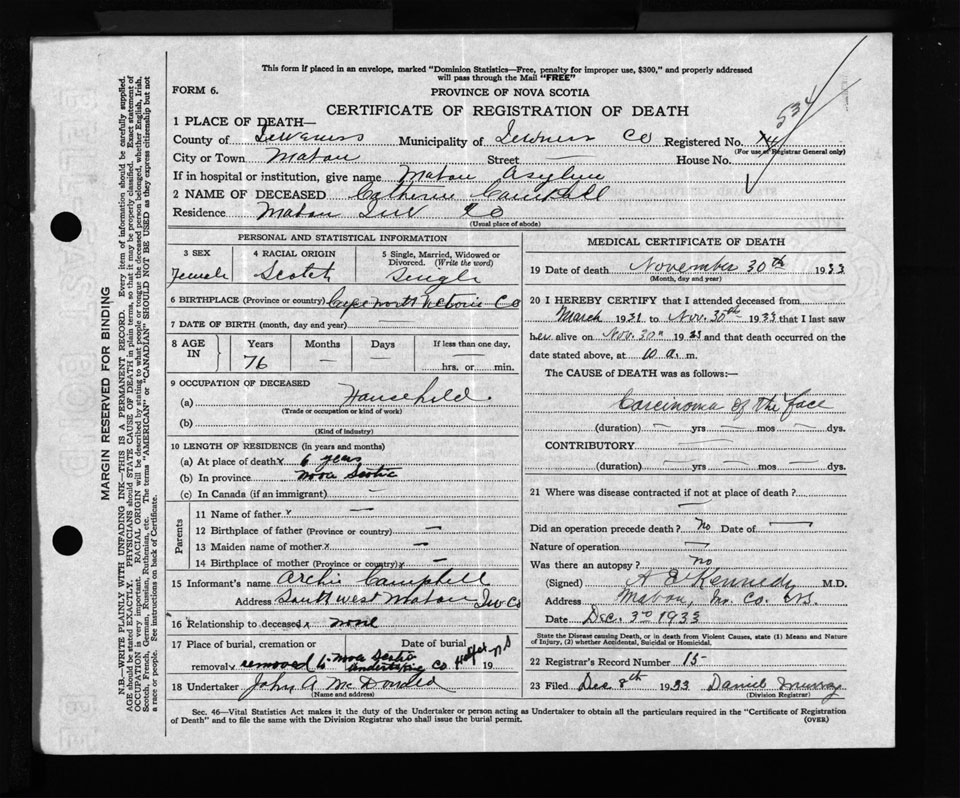 This form if placed in an envelope, marked "Dominion Statistics—Free, penalty for improper use, $300," and properly addressed
will pass through the Mail "FREE"
FORM 6.
PROVINCE OF NOVA SCOTIA
CERTIFICATE OF REGISTRATION OF DEATH
534
1 PLACE OF DEATH—
County of Municipality of Co Registered No.
(For use of Registrar General only)
City or Town Mabou Street — House No.
If in hospital or institution, give name Mabou Asylum
2 NAME OF DECEASED Catherine Campbell
Residence Mabou Inv Co
(Usual place of abode)
PERSONAL AND STATISTICAL INFORMATION
3 SEX
Female
4 RACIAL ORIGIN
Scotch
5 Single, Married, Widowed or
Divorced. (Write the word)
Single
6 BIRTHPLACE (Province or country) Cape North Victoria Co
7 DATE OF BIRTH (month, day and year)
8 AGE
IN
Years Months Days If less than one day.
76 — — —
hrs. or min.
9 OCCUPATION OF DECEASED
(a) Household
(Trade or occupation or kind of work)
(b)
(Kind of industry)
10 LENGTH OF RESIDENCE (in years and months)
(a) At place of death x 6 years
(b) In province Nova Scotia
(c) In Canada (if an immigrant) —
Parents
11 Name of father x —
12 Birthplace of father (Province or country) —
13 Maiden name of mother x —
14 Birthplace of mother (Province or country) x —
15 Informant's name Archie Campbell
Address South west Mabou Inv Co
16 Relationship to deceased x none
17 Place of burial, cremation or Date of burial
removal x removed to Nova Scotia undertaking Co. Halfax N S 19
18 Undertaker John A McDonald
(Name and address)
MEDICAL CERTIFICATE OF DEATH
19 Date of death November 30th 1933
(Month, day and year)
20 I HEREBY CERTIFY that I attended deceased from
March 1931 to Nov. 30th 1933 that I last saw
her alive on Nov. 30th 1933 and that death occurred on the
date stated above, at 10 a. m.
The CAUSE of DEATH was as follows:—
Carcinoma of the face
(duration) — yrs — mos — dys.
CONTRIBUTORY —
(duration) — yrs — mos — dys.
21 Where was disease contracted if not at place of death?
—
Did an operation precede death? No Date of —
Nature of operation —
Was there an autopsy? no
(Signed) Kennedy M.D.
Address Mabou, In. Co. N.S.
Date Dec. 3rd 1933
State the Disease causing Death, or in death from Violent Causes, state (1) Means and Nature
of Injury, (2) whether Accidental, Suicidal or Homicidal.
22 Registrar's Record Number 15
23 Filed Dec 8th 1933 Daniel Murray
(Division Registrar)
Sec. 46—Vital Statistics Act makes it the duty of the Undertaker or person acting as Undertaker to obtain all the particulars required in the "Certificate of Registration
of Death" and to file the same with the Division Registrar who shall issue the burial permit.
(OVER)
MARGIN RESERVED FOR BINDING
N.B.—WRITE PLAINLY WITH UNFADING INK—THIS IS A PERMANENT RECORD. Every item of information should be carefully supplied.
AGE should be stated EXACTLY. PHYSICIANS should STATE CAUSE OF DEATH in plain terms, so that it may be properly classified. Exact statement of
OCCUPATION is very important. RACIAL ORIGIN will be described by stating to what people or tongue the deceased person belonged, whether English, Irish,
Scotch, French, German, Russian, Ruthenian, etc. The terms "AMERICAN" or "CANADIAN" SHOULD NOT BE USED as they express citizenship but not
a race or people. See instructions on back of Certificate.